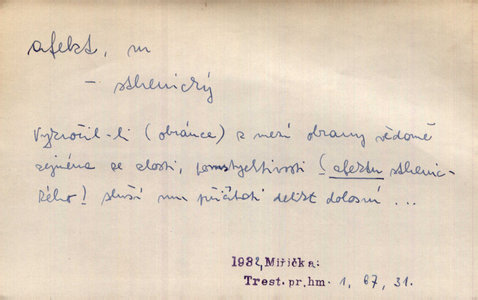 afekt, m
– sthenický
Vykročil-li (obránce) z mezí obrany vědomě
zejména ze zlosti, pomstychtivosti (afektu sthenic-
kého) sluší mu přičítati delikt dolosní ...
1932, Miřička:
Trest. pr. hm. 1, 67, 31.